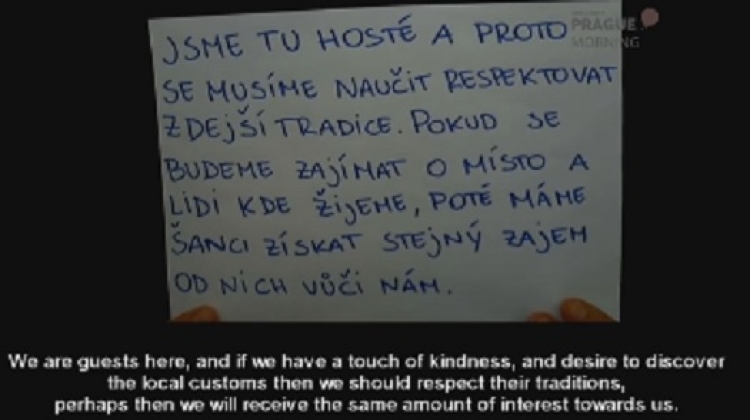 PRAGUE
MORNING
JSME TU HOSTÉ A PROTO
SE MUSÍME NAUČIT RESPEKTOVAT
ZDEJŠÍ TRADICE. POKUD SE
BUDEME ZAJÍMAT O MÍSTO A
LIDI KDE ŽIJEME, POTÉ MÁME
ŠANCI ZÍSKAT STEJNÝ ZAJEM
OD NICH VŮČI NÁM.
We are guests here, and if we have a touch of kindness, and desire to discover
the local customs then we should respect their traditions,
perhaps then we will receive the same amount of interest towards us.